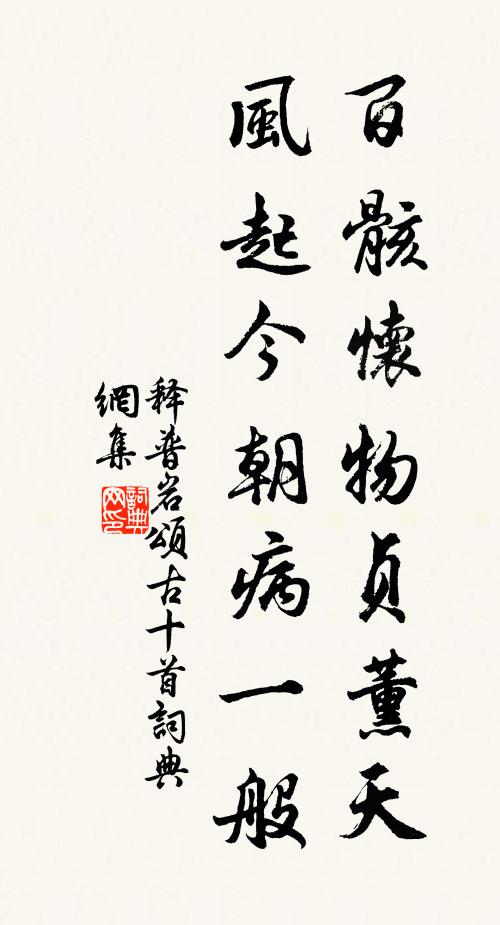 百骸懷物貞薰天
風起今朝病一般
释普岩頌古十首詞典
網集
詞典网印